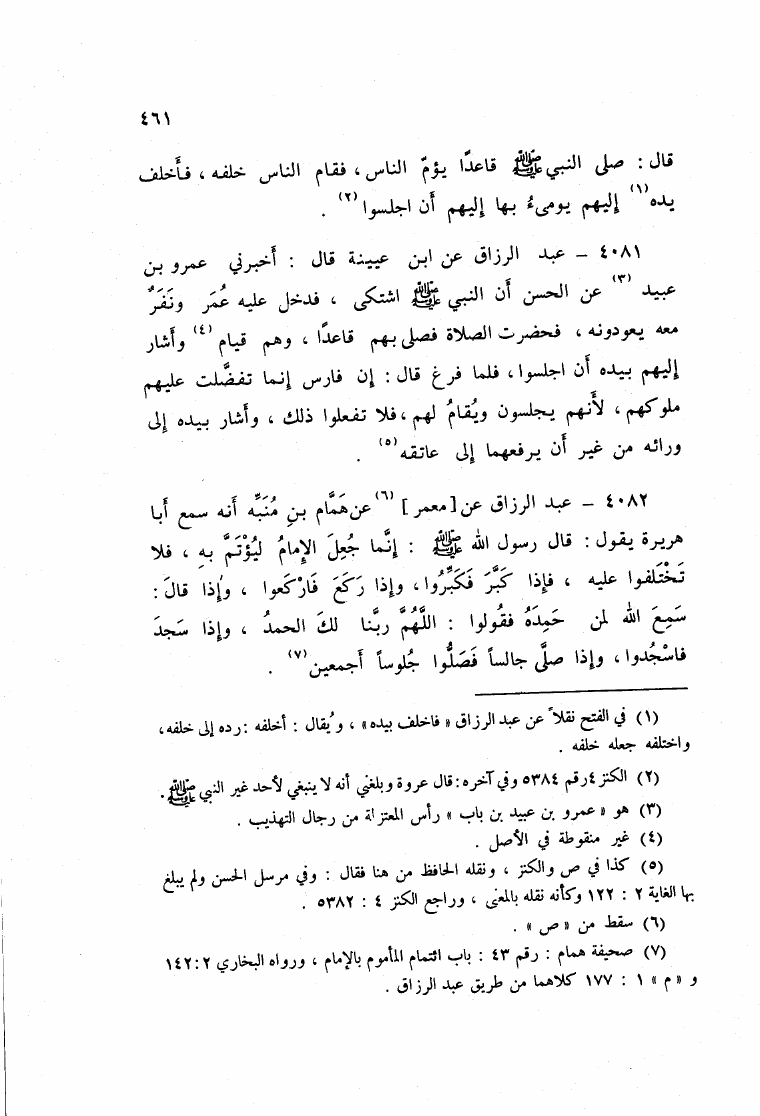 ٤٦١
قال : صلى النبي ﷺ قاعدًا يؤمّ الناس ، فقام الناس خلفه ، فأَخلف
يده(١) إليهم يومىءُ بها إليهم أن اجلسوا(٢) .
٤٠٨١ – عبد الرزاق عن ابن عيينة قال : أخبرني عمرو بن
عبيد (٣) عن الحسن أن النبي ﷺ اشتكى ، فدخل عليه عُمَر ونَفَرٌ
معه يعودونه ، فحضرت الصلاة فصلى بهم قاعدًا ، وهم قيام (٤) وأشار
إليهم بيده أن اجلسوا ، فلما فرغ قال : إن فارس إنما تفضَّلت عليهم
ملوكهم ، لأَنهم يجلسون ويُقامُ لهم ، فلا تفعلوا ذلك ، وأشار بيده إلى
ورائه من غير أن يرفعهما إلى عاتقه(٥) .
٤٠٨٢ – عبد الرزاق عن [ معمر ] (٦) عن هَمَّام بنِ مُنَبِّه أنه سمع أبا
هريرة يقول : قال رسول الله ﷺ : إنَّما جُعِلَ الإمامُ ليُؤْتَمَّ به ، فلا
تَخْتَلفوا عليه ، فإذا كَبَّرَ فَكَبِّرُوا ، وإذا رَكَعَ فَارْكَعوا ، وإذا قالَ :
سَمِعَ الله لمن حَمِدَهُ فقُولوا : اللَّهُمَّ ربَّنا لكَ الحمدُ ، وإذا سَجدَ
فاسْجُدوا ، وإذا صلَّى جالساً فَصَلُّوا جُلوساً أجمعين(٧) .
(١) في الفتح نقلاً عن عبد الرزاق « فاخلف بيده » ، ويُقال : أخلفه : رده إلى خلفه ،
واختلفه جعله خلفه .
(٢) الكنز ٤ رقم ٥٣٨٤ وفي آخره : قال عروة وبلغني أنه لا ينبغي لأحد غير النبي ﷺ .
(٣) هو « عمرو بن عبيد بن باب » رأس المعتزلة من رجال التهذيب .
(٤) غير منقوطة في الأصل .
(٥) كذا في ص والكنز ، ونقله الحافظ من هنا فقال : وفي مرسل الحسن ولم يبلغ
بها الغاية ٢ : ١٢٢ وكأنه نقله بالمعنى ، وراجع الكنز ٤ : ٥٣٨٢ .
(٦) سقط من « ص » .
(٧) صحيفة همام : رقم ٤٣ : باب ائتمام المأموم بالإمام ، ورواه البخاري ٢ : ١٤٢
و « م » ١ : ١٧٧ كلاهما من طريق عبد الرزاق .